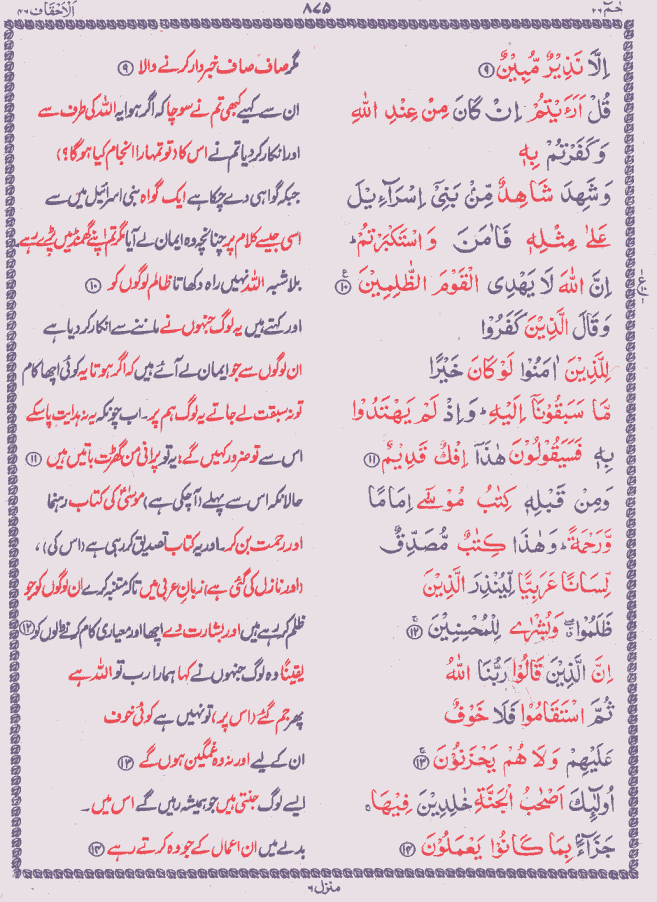 حٰمٓ ۲۶ ۸۷۵ اَلْاَحْقَاف ۴۶
اِلَّا نَذِيْرٌ مُّبِيْنٌ ۹ مگر صاف صاف خبردار کرنے والا ۹
قُلْ اَرَءَيْتُمْ اِنْ كَانَ مِنْ عِنْدِ اللّٰهِ ان سے کہیے کبھی تم نے سوچا کہ اگر ہوا یہ اللہ کی طرف سے
وَكَفَرْتُمْ بِهٖ اور انکار کر دیا تم نے اس کا (تو تمہارا انجام کیا ہوگا؟)
وَشَهِدَ شَاهِدٌ مِّنْۢ بَنِيْٓ اِسْرَآءِيْلَ جبکہ گواہی دے چکا ہے ایک گواہ بنی اسرائیل میں سے
عَلٰى مِثْلِهٖ فَاٰمَنَ وَاسْتَكْبَرْتُمْ ؕ اسی جیسے کلام پر چنانچہ وہ ایمان لے آیا مگر تم اپنے گھمنڈ میں پڑے رہے۔
اِنَّ اللّٰهَ لَا يَهْدِى الْقَوْمَ الظّٰلِمِيْنَ ۱۰ بلاشبہ اللہ نہیں راہ دکھاتا ظالم لوگوں کو ۱۰
وَقَالَ الَّذِيْنَ كَفَرُوْا اور کہتے ہیں یہ لوگ جنہوں نے ماننے سے انکار کر دیا ہے
لِلَّذِيْنَ اٰمَنُوْا لَوْ كَانَ خَيْرًا ان لوگوں سے جو ایمان لے آئے ہیں کہ اگر ہوتا یہ کوئی اچھا کام
مَّا سَبَقُوْنَآ اِلَيْهِ ؕ وَاِذْ لَمْ يَهْتَدُوْا تو نہ سبقت لے جاتے یہ لوگ ہم پر۔ اب چونکہ یہ نہ ہدایت پا سکے
بِهٖ فَسَيَقُوْلُوْنَ هٰذَآ اِفْكٌ قَدِيْمٌ ۱۱ اس سے تو ضرور کہیں گے: یہ تو پرانی من گھڑت باتیں ہیں ۱۱
وَمِنْ قَبْلِهٖ كِتٰبُ مُوْسٰٓى اِمَامًا حالانکہ اس سے پہلے (آ چکی ہے) موسیٰؑ کی کتاب رہنما
وَّرَحْمَةً ؕ وَهٰذَا كِتٰبٌ مُّصَدِّقٌ اور رحمت بن کر۔ اور یہ کتاب تصدیق کر رہی ہے (اس کی)،
لِّسَانًا عَرَبِيًّا لِّيُنْذِرَ الَّذِيْنَ (اور نازل کی گئی ہے) زبانِ عربی میں تاکہ متنبہ کرے ان لوگوں کو جو
ظَلَمُوْا ۖ وَبُشْرٰى لِلْمُحْسِنِيْنَ ۱۲ ظلم کر رہے ہیں اور بشارت دے اچھا اور معیاری کام کرنے والوں کو ۱۲
اِنَّ الَّذِيْنَ قَالُوْا رَبُّنَا اللّٰهُ یقیناً وہ لوگ جنہوں نے کہا ہمارا رب تو اللہ ہے
ثُمَّ اسْتَقَامُوْا فَلَا خَوْفٌ پھر جم گئے (اس پر)، تو نہیں ہے کوئی خوف
عَلَيْهِمْ وَلَا هُمْ يَحْزَنُوْنَ ۱۳ ان کے لیے اور نہ وہ غمگین ہوں گے ۱۳
اُولٰٓئِكَ اَصْحٰبُ الْجَنَّةِ خٰلِدِيْنَ فِيْهَا ۚ ایسے لوگ جنتی ہیں جو ہمیشہ رہیں گے اس میں۔
جَزَآءًۢ بِمَا كَانُوْا يَعْمَلُوْنَ ۱۴ بدلے میں ان اعمال کے جو وہ کرتے رہے ۱۴
منزل ۶